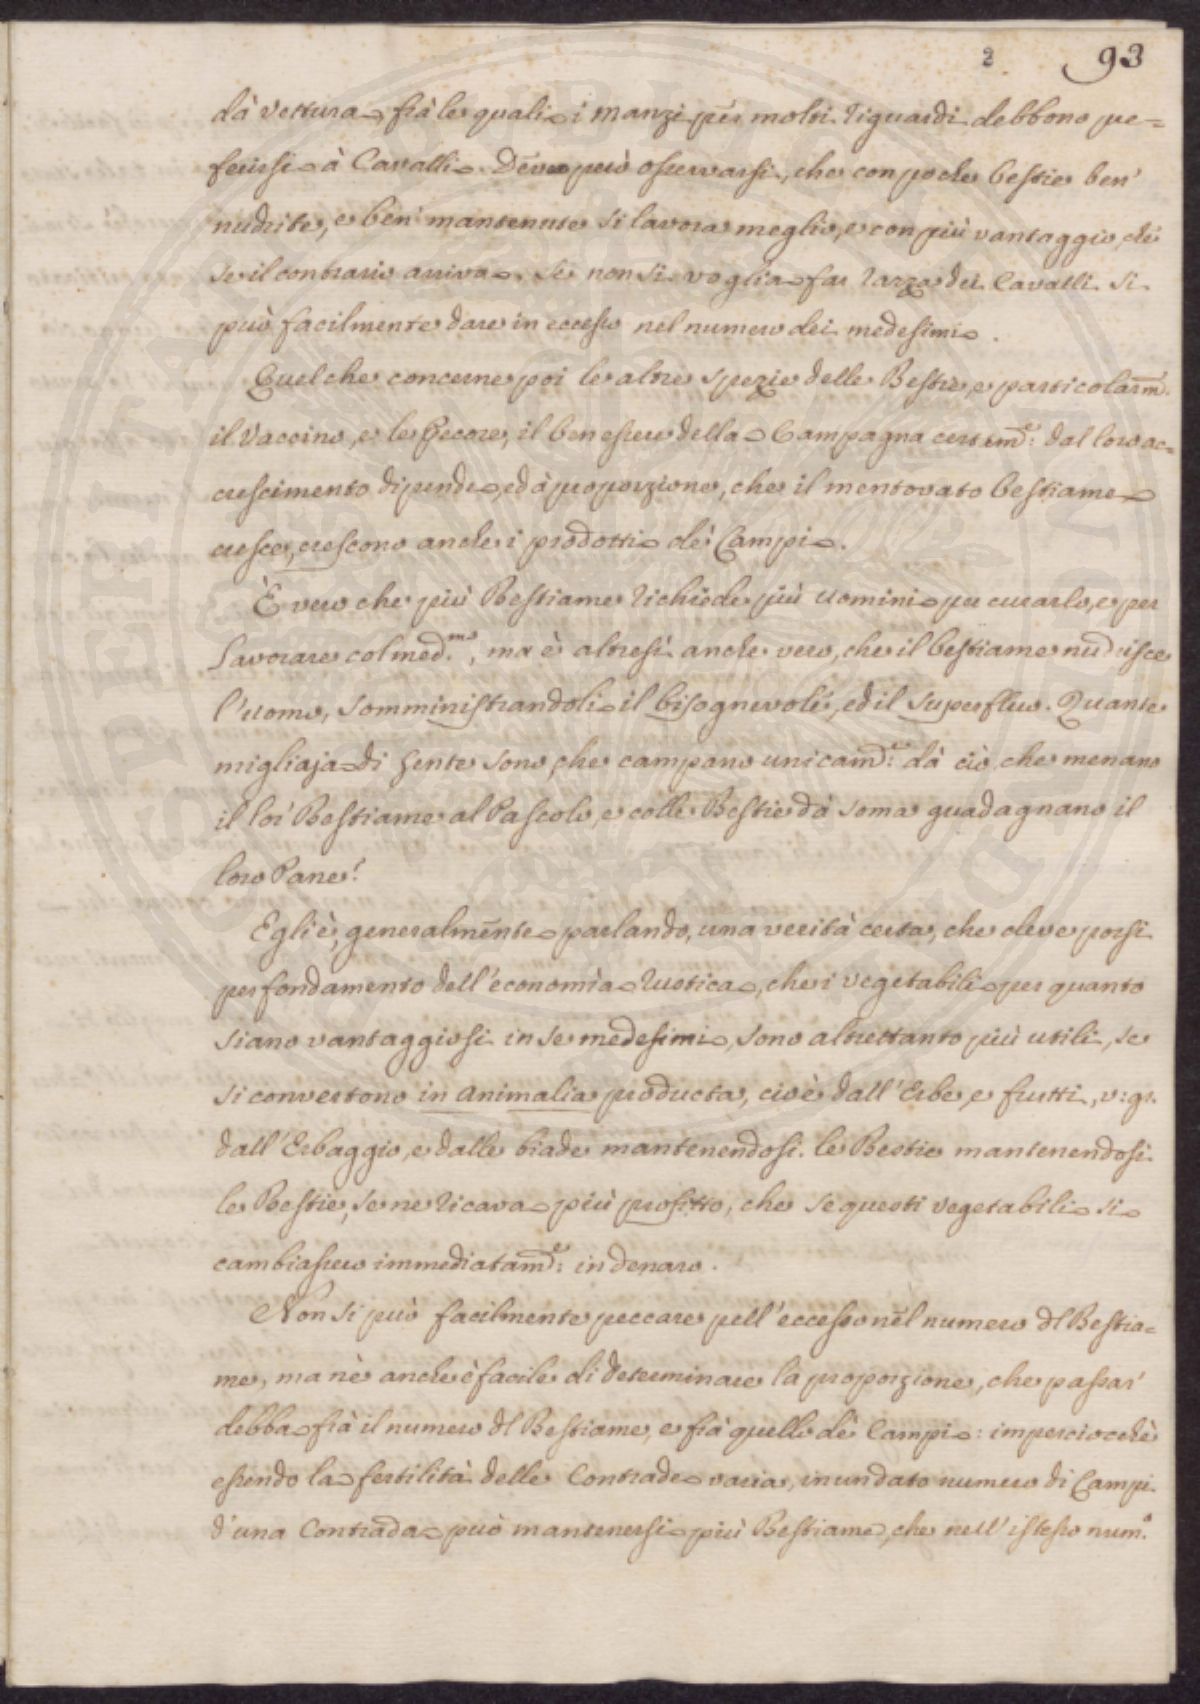 2 93
dà Vettura, frà le quali i Manzi per molti riguardi debbono pre=
ferirsi à Cavalli. Deve però osservarsi, che con poche bestie ben'
nudrite, e ben' mantenute si lavora meglio, e con più vantaggio, che
se il contrario arriva. Se non si voglia far razza dei Cavalli si
può facilmente dare in eccesso nel numero dei medesimi.
Quel che concerne poi le altre spezie delle Bestie, e particolarm.e
il Vaccino, e le Pecore, il ben essere della Campagna certam.e: dal loro ac=
crescimento dipende, ed à proporzione, che il mentovato bestiame
cresce, crescono anche i prodotti de' Campi.
È vero che più Bestiame richiede più uomini per curarlo, e per
lavorare col med.mo, ma è altresì anche vero, che il bestiame nudrisce
l'uomo, somministrandoli il bisognevole, ed il superfluo. Quante
migliaja di gente sono, che campano unicam.e: dà ciò, che menano
il lor' Bestiame al Pascolo, e colle Bestie dà soma guadagnano il
loro Pane!
Egli è, generalmente parlando, una verità certa, che deve porsi
per fondamento dell'economia rustica, che i vegetabili per quanto
siano vantaggiosi in se medesimi, sono altrettanto più utili, se
si convertono in animalia producta, cioè dall'Erbe, e frutti, v: gr.
dall'Erbaggio, e dalle biade mantenendosi le Bestie mantenendosi
le Bestie, se ne ricava più profitto, che se questi vegetabili si
cambiassero immediatam.e: in denaro.
Non si può facilmente peccare pell'eccesso nel numero dl Bestia=
me, ma nè anche è facile di determinare la proporzione, che passar'
debba frà il numero dl Bestiame, e frà quello de' Campi: imperciocchè
essendo la fertilità delle Contrade varia, in un dato numero di Campi
d'una Contrada può mantenersi più Bestiame, che nell'istesso num.o